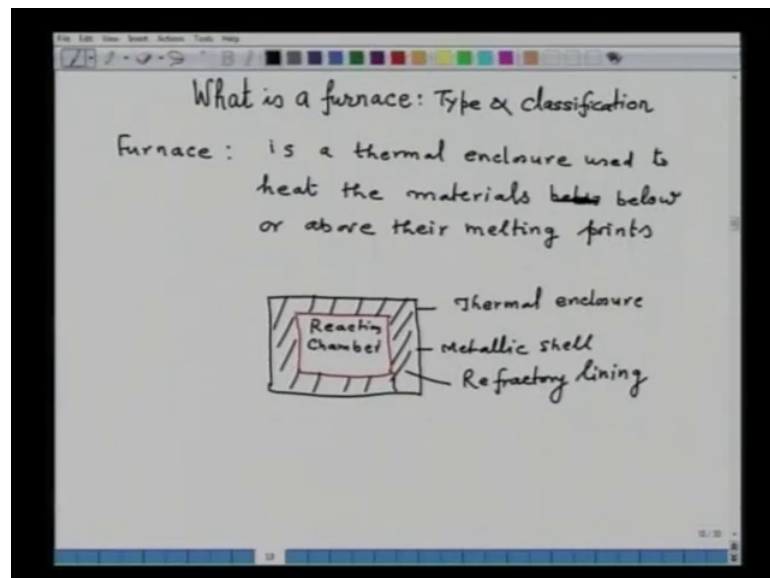 File Edit View Insert Actions Tools Help
What is a furnace: Type & classification
Furnace: is a thermal enclosure used to
heat the materials below
or above their melting prints
Thermal enclosure
Reaction
Chamber
Metallic shell
Refractory lining
13